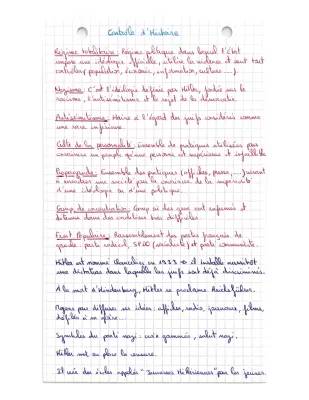 Contrôle d'Histoire
Régime totalitaire : Régime politique dans lequel l'état
impose une idéologie officielle, utilise la violence et veut tout
contrôler (population, économie, information, culture ...)
Nazisme : C'est l'idéologie définie par Hitler, fondée sur le
racisme, l'antisémitisme et le rejet de la démocratie.
Antisémitisme : Haine à l'égard des juifs considérés comme
une race inférieure.
Culte de la personnalité : ensemble de pratiques utilisées pour
convaincre un peuple qu'une personne est supérieure et infaillible
Propagande : Ensemble des pratiques (affiches, presse, ...) visant
à une société pour la convaincre de la supériorité
d'une idéologie ou d'une politique.
Camp de concentration : Camp où des gens sont enfermés et
détenus dans des conditions très difficiles
Front Populaire : Rassemblement des partis français de
gauche : parti radical, (socialiste) et parti communiste.
Hitler est nommé Chancelier en 1933 → il installe aussitôt
une dictature dans laquelle les juifs sont déjà discriminés.
A la mort d'Hindenburg, Hitler se proclame Reichsführer.
Moyens pour diffuser ses idées : affiches, radio, journaux, films,
défilés
Symboles du parti nazi : croix gammée, salut nazi.
Hitler met en place la censure.
Il crée des appelés "Jeunesses Hitlériennes" pour les jeunes.